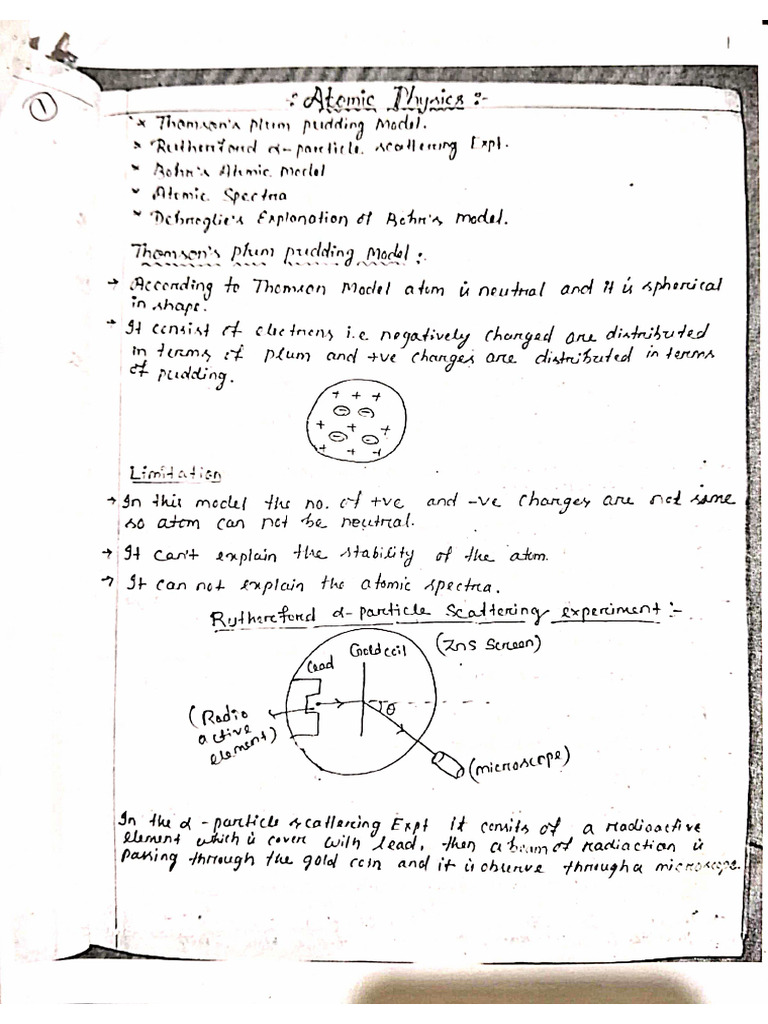 1
1
:Atomic Physics:-
* Thomson's plum pudding Model.
* Rutherford α-particle scattering Expt.
* Bohr's Atomic Model
* Atomic Spectra
* Debroglie's Explanation of Bohr's Model.
Thomson's plum pudding Model:-
→ According to Thomson Model atom is neutral and it is spherical
in shape.
→ It consist of electrons i.e negatively charged are distributed
in terms of plum and +ve charges are distributed in terms
of pudding.
+ + +
+ - - 
+ + - - +
+ + +
Limitation
→ In this model the no. of +ve and -ve charges are not same
so atom can not be neutral.
→ It can't explain the stability of the atom.
→ It can not explain the atomic spectra.
Rutherford α-particle Scattering experiment:-
(ZnS Screen)
Gold coil
Lead
θ
(Radio
active
element)
(microscope)
In the α-particle scattering Expt it consits of a radioactive
element which is cover with lead, then a beam of radiaction is
passing through the gold coin and it is observe through a microscope.